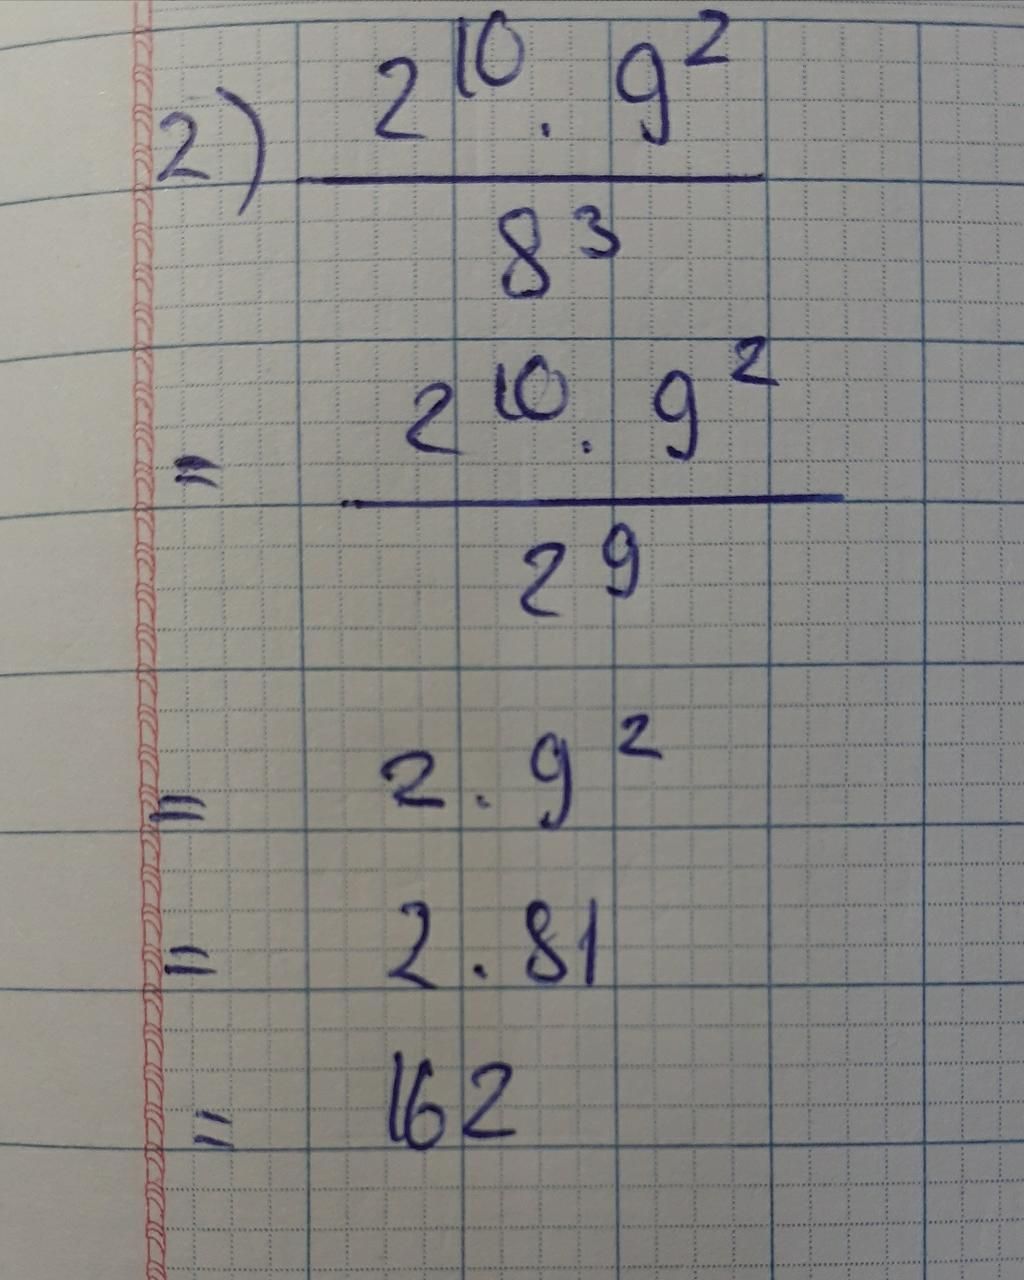 2) 2^10 . 9^2
8^3
= 2^10 . 9^2
2^9
= 2 . 9^2
= 2 . 81
= 162